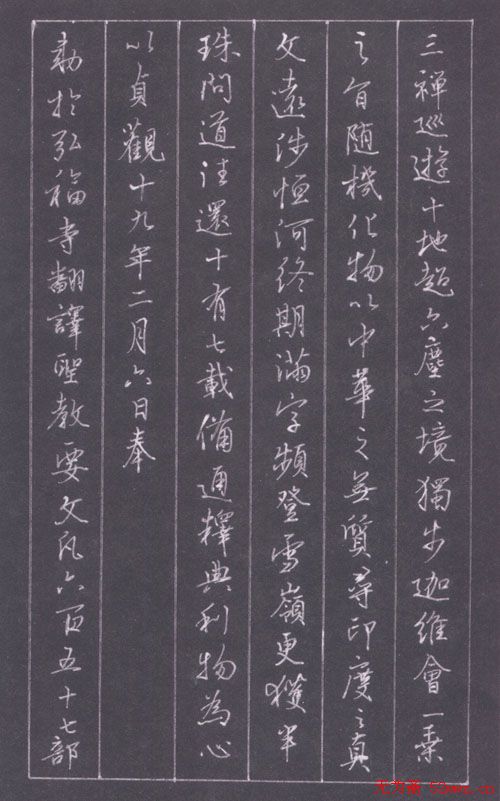 三禪巡遊十地超六塵之境獨步迦維會一乘
之旨隨機化物以中華之無質尋印度之真
文遠涉恒河終期滿字頻登雪嶺更獲半
珠問道往還十有七載備通釋典利物為心
以貞觀十九年二月六日奉
勅於弘福寺翻譯聖教要文凡六百五十七部